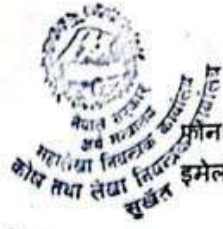 नेपाल सरकार
अर्थ मन्त्रालय
महालेखा नियन्त्रक कार्यालय
कोष तथा लेखा नियन्त्रक कार्यालय
सुर्खेत
फोन
इमेल